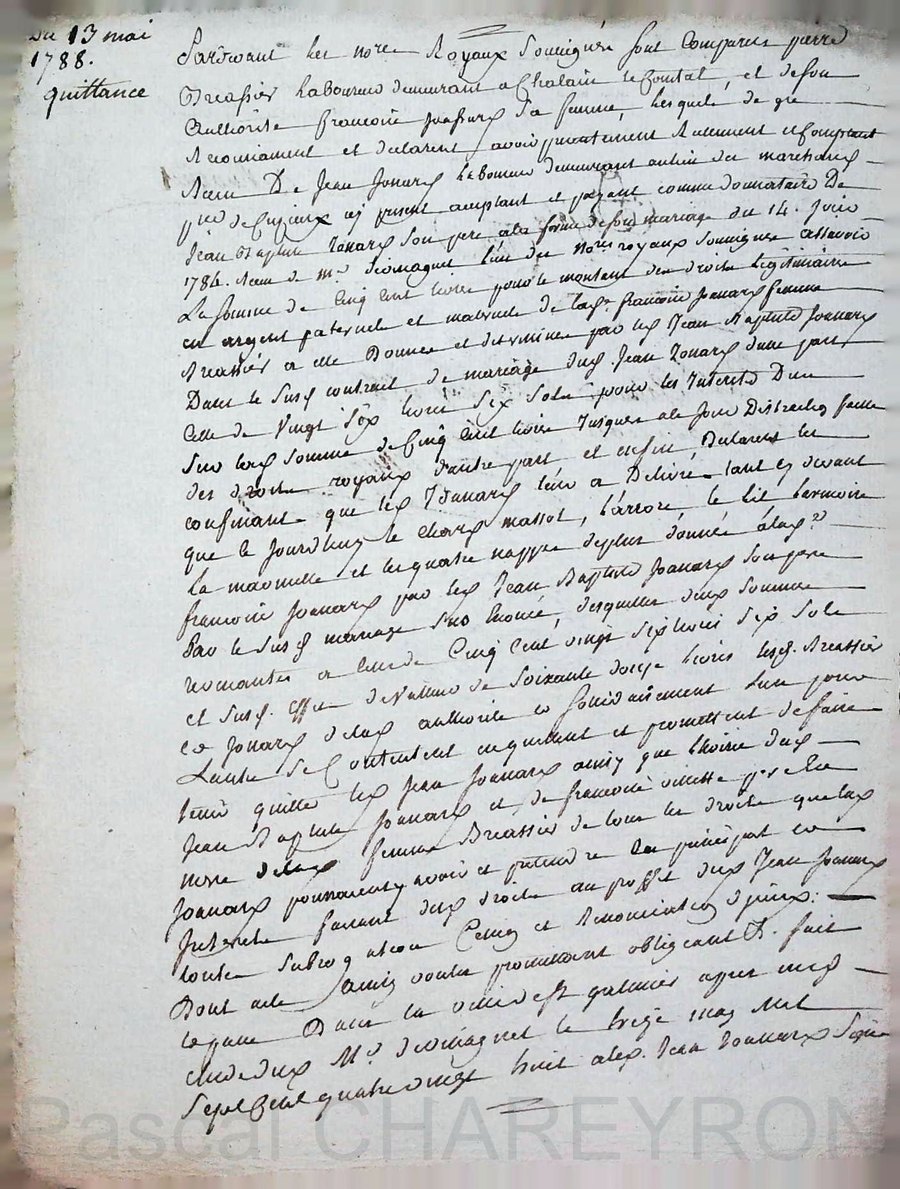 Du 13 mai
1788.
quittance
Pardevant les nores Royaux soussignés sont comparus pierre
Breassier laboureur demeurant a Chalain le Comtal, et de son
authorité francoise Jouard sa femme lesquels de gré
reconnaissent et declarent avoir presentement reellement et comptant
Recu De Jean Jouard laboureur demeurant au lieu des marchands
psse de Cuzieux icy present acceptant et payant comme donnataire De
Jean Baptiste Jouard son pere a la forme de son mariage du 14. Juin
1784. recu de me diomagnet l'un des nores royaux soussignés
La somme de Cinq cent livres pour le montant des droits legitimaires
en argent paternels et maternels de lad. francoise Jouard femme
Breassier a elle Donnée et determinée par led Jean Baptiste Jouard
Dans le susd contrait de mariage dud Jean Jouard d'une part
Celle de vingt six livres six sols pour les Interets Dus
Sur lad somme de Cinq cent livres Jusques a ce Jour Distraction faite
des droits royaux d'autre part et enfin, Declarent les
confessants que led Jouard leur a Delivré tant cy devant
que le jourdhuy le chard massot, le lit larmoire
la marmitte et les quatre nappes de plus donnés a lad
francoise Jouard par led Jean Baptiste Jouard son pere
Par le susd mariage sus enoncé, desquelles deux sommes
revenantes a celle de Cinq cent vingt six livres six sols
et susd. effets de valleur de soixante douze livres lesd. Breassier
et Jouard de lad authorité et solidairement l'un pour
L'autre se Contentent en quittent et promettent de faire
tenir quitte led Jean Jouard ainsy que l'hoirie dud
Jean Baptiste Jouard et de francoise
mere de lad femme Breassier de tous les droits que lad
Jouard pourroient y avoir et pretendre en principal et
Interets faisant dud droits au proffit dud Jean Jouard
toutes subrogation Cession et renonciation
Dont acte ainsy voulu promettant obligeant &. fait
et passé Dans la ville de St galmier apres midy
etude dud Me diomagnet le treize may Mil
Sept Cent quatre vingt huit et led. Jean Jouard signé
Pascal CHAREYRON